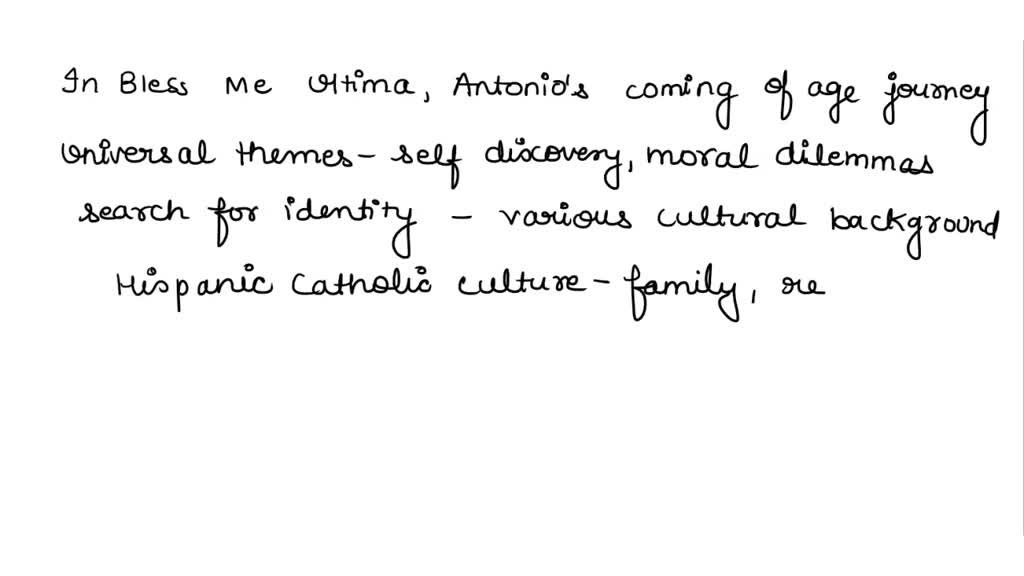 In Bless Me Ultima, Antonio's coming of age journey
Universal themes - self discovery, moral dilemmas
search for identity - various cultural background
Hispanic Catholic culture - family, re